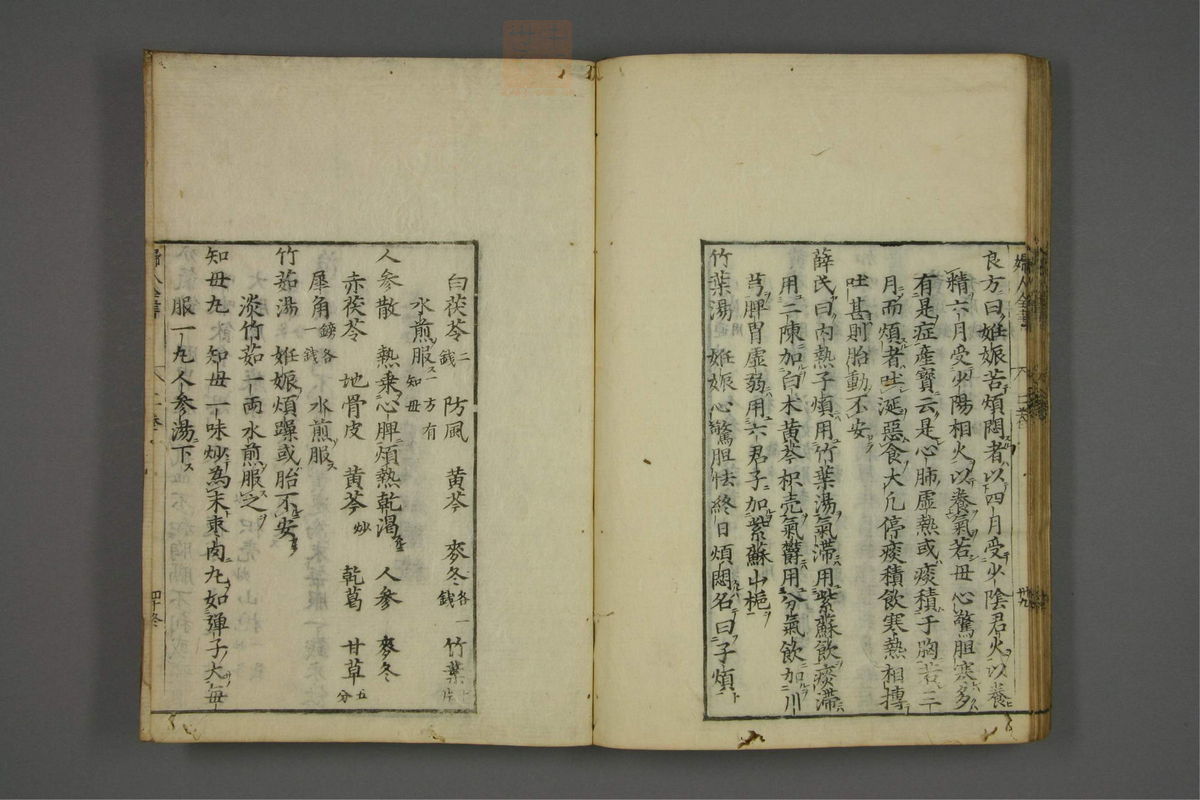 良方曰妊娠苦煩悶者以四月受少陰君火以養
精六月受少陽相火以養氣若母心驚胆寒多
有是症產寶云是心肺虛熱或痰積于胸若三
月而煩者吐涎惡食大凡停痰積飲寒熱相搏
吐甚則胎動不安
薛氏曰內熱子煩用竹葉湯氣滯用紫蘇飲痰滯
用二陳加白术黃芩枳壳氣欝用分氣飲加川
芎脾胃虛弱用六君子加紫蘇山梔
竹葉湯 妊娠心驚胆怯終日煩悶名曰子煩
白茯苓二錢 防風 黃芩 麥冬各一錢 竹葉
水煎服一方有知母
人參散 熱乗心脾煩熱乾渴 人參 麥冬
赤茯苓 地骨皮 黃芩炒 乾葛 甘草五分
犀角鎊各錢 水煎服
竹茹湯 妊娠煩躁或胎不安
淡竹茹一兩水煎服之
知母丸 知母一味炒為末棗肉丸如彈子大每
服一丸人參湯下